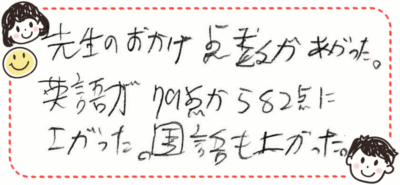 先生のおかげ 点数があがった。
英語が 79点から82点に
上がった。国語も上がった。